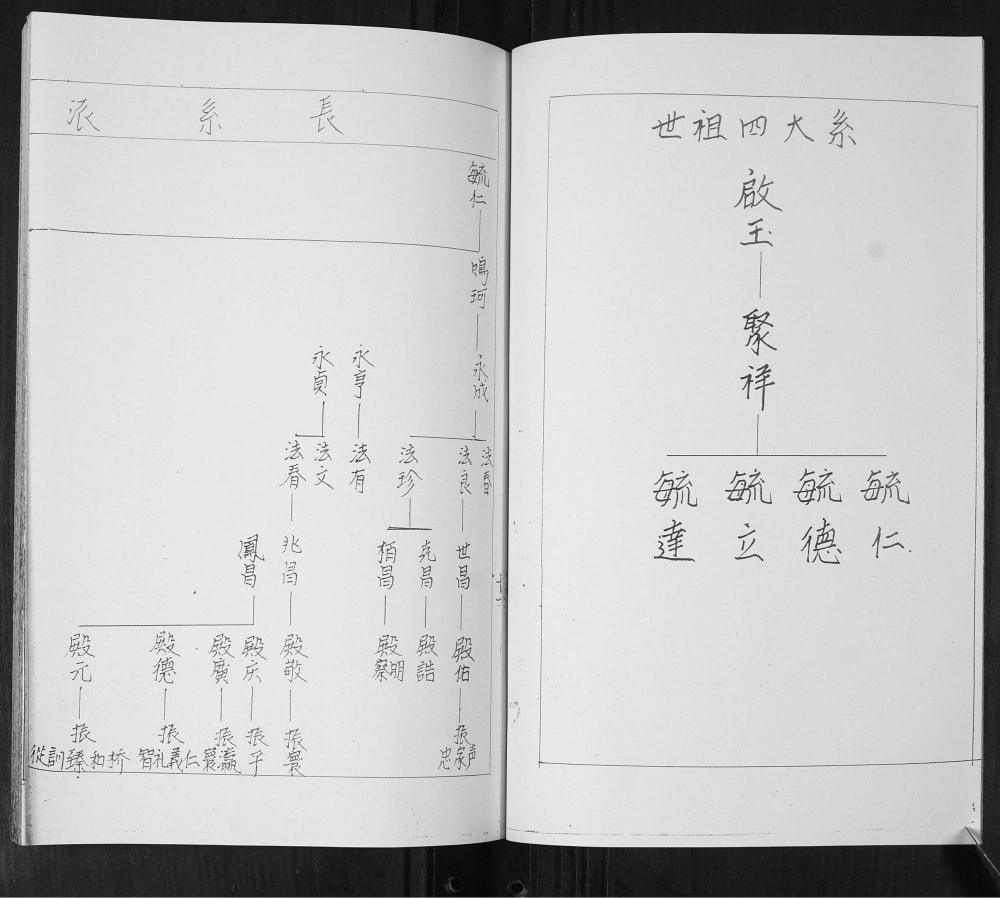 世祖四大系
啟玉
聚祥
毓仁
毓德
毓立
毓達
長系派
毓仁
鳴珂
永成
永亨
永貞
法春
法良
法珍
法有
法文
法春
世昌
堯昌
栢昌
兆昌
鳳昌
殿佑
殿誥
殿明察
殿敬
殿庆
殿廣
殿德
殿元
振声家忠
振寰
振平
振瀛寰
振仁義礼智
振桥和臻訓從